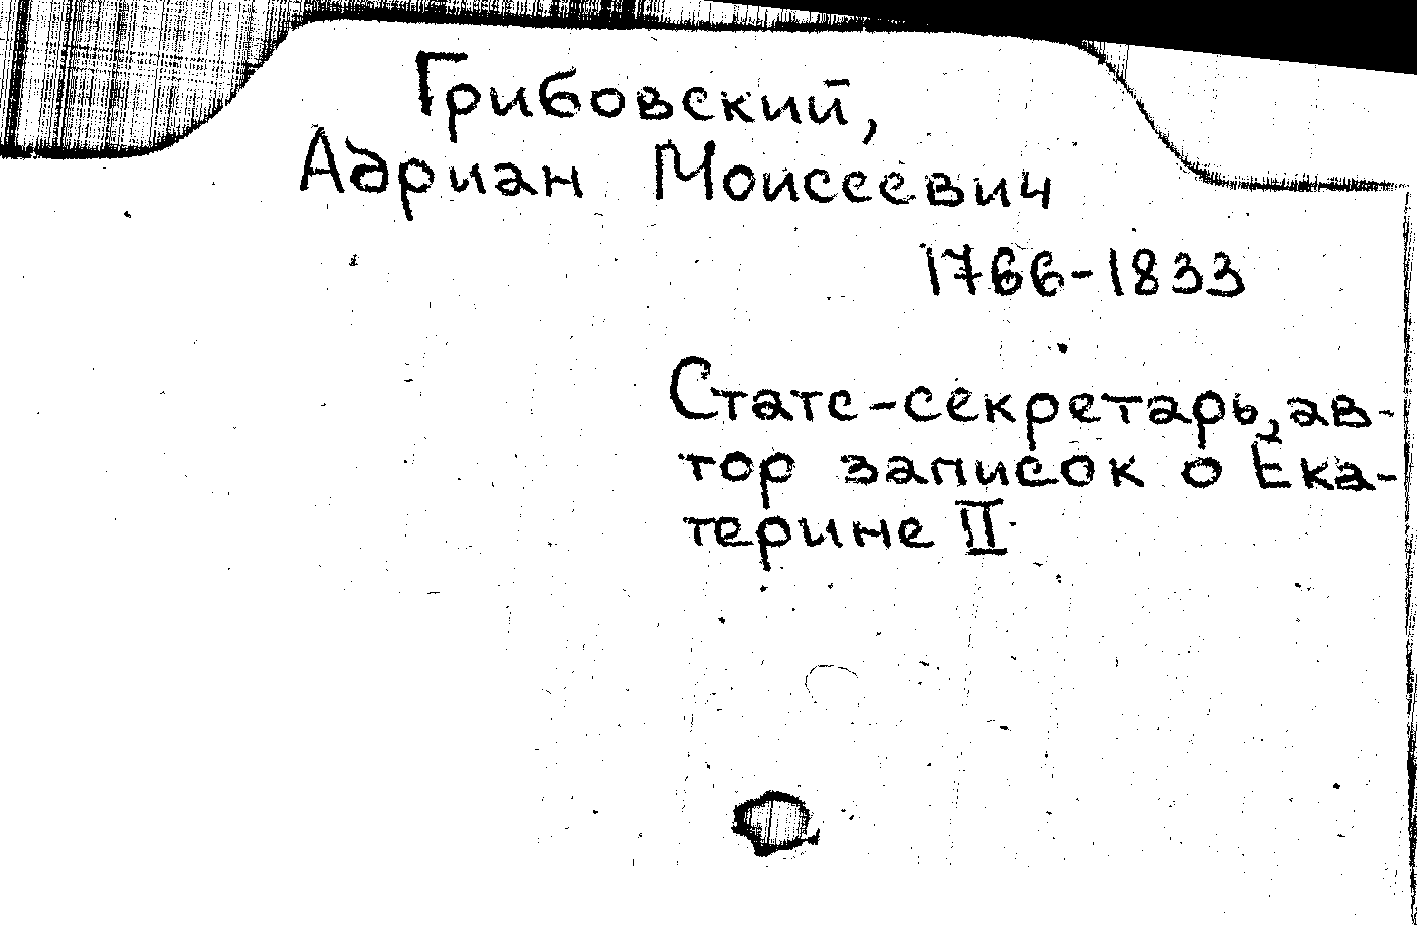 Грибовский,
Адриан Моисеевич
1766-1833
Статс-секретарь, ав-
тор записок о Ека-
терине II